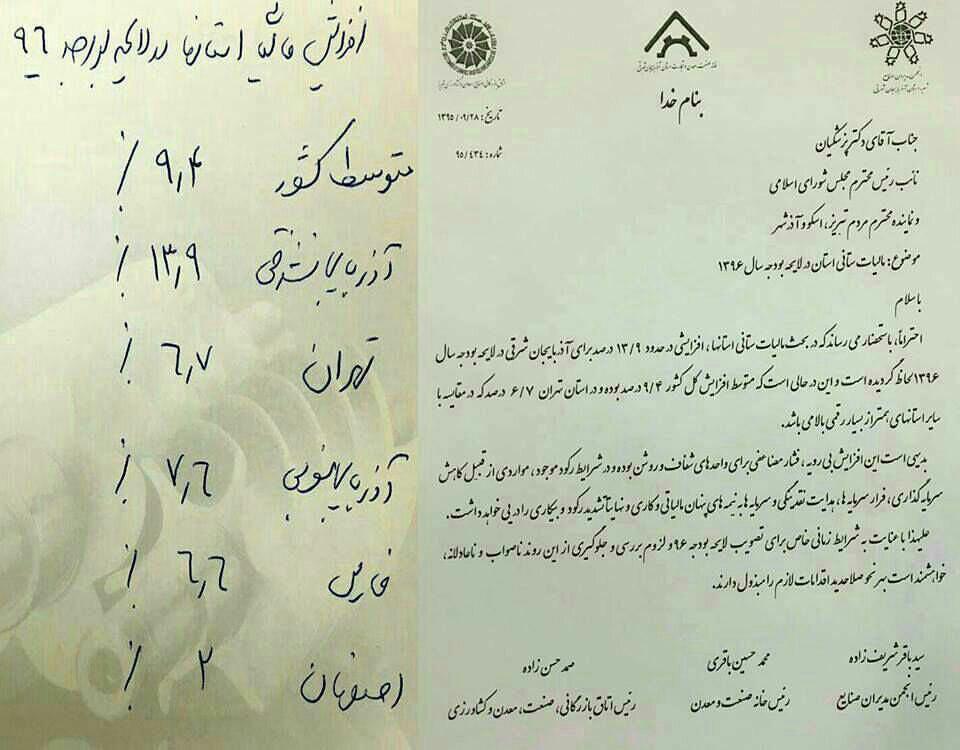 افزایش مالیات استانها در لایحه بودجه ۹۶
متوسط کشور ۹٫۴ ٪
آذربایجانشرقی ۱۳٫۹ ٪
تهران ۶٫۷ ٪
آذربایجانغربی ۷٫۶ ٪
فارس ۶٫۶ ٪
اصفهان ۲ ٪
انجمن مدیران صنایع
خانه صنعت، معدن و تجارت استان آذربایجان شرقی
بنام خدا
تاریخ: ۱۳۹۵/۰۹/۲۸
شماره: ۹۵/۴۳۴
جناب آقای دکتر پزشکیان
نائب رئیس محترم مجلس شورای اسلامی
و نماینده محترم مردم تبریز، اسکو و آذرشهر
موضوع: مالیات ستانی استان در لایحه بودجه سال ۱۳۹۶
با سلام
احتراماً، با استحضار می رساند که در بحث مالیات ستانی استانها، افزایشی در حدود ۱۳/۹ درصد برای آذربایجان شرقی در لایحه بودجه سال
۱۳۹۶ لحاظ گردیده است و این در حالی است که متوسط افزایش کل کشور ۹/۴ درصد بوده و در استان تهران ۶/۷ درصد که در مقایسه با
سایر استانهای همتراز بسیار رقمی بالا می باشد.
بدیهی است این افزایش بی رویه، فشار مضاعفی برای واحدهای شفاف و روشن بوده و در شرایط رکود موجود، مواردی از قبیل کاهش
سرمایه گذاری، فرار سرمایه ها، هدایت نقدینگی و سرمایه ها به نیمه های پنهان مالیاتی و کاری و نهایتاً تشدید رکود و بیکاری را در پی خواهد داشت.
علیهذا با عنایت به شرایط زمانی خاص برای تصویب لایحه بودجه ۹۶ و لزوم بررسی و جلوگیری از این روند ناصواب و ناعادلانه،
خواهشمند است به هر نحو صلاحدید اقدامات لازم را مبذول دارند.
سید باقر شریف زاده
رئیس انجمن مدیران صنایع
محمد حسین باقری
رئیس خانه صنعت و معدن
صمد حسن زاده
رئیس اتاق بازرگانی، صنعت، معدن و کشاورزی